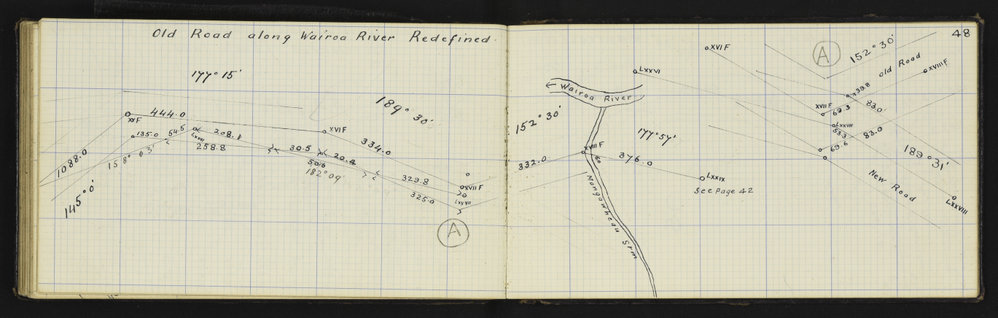 Old Road along Wairoa River Redefined.
177° 15'
189° 30'
XXF
444.0
XVIF
135.0
54.5
208.1
LXXIII
258.8
30.5
20.8
50.0
334.0
158° 03'
182° 09'
329.8
XVIIF
LXXVII
325.0
1088.0
145° 0'
A
48
XVIF
LXXVI
← Wairoa River
152° 30'
177° 57'
XVIIIF
332.0
60
376.0
LXXIX
See Page 42
Mangawheau Strm
A
152° 30'
old Road
XVIIIF
39.8
XVIIF
69.3
83.0
LXXVII
53.3
83.0
69.6
189° 31'
New Road
LXXVIII